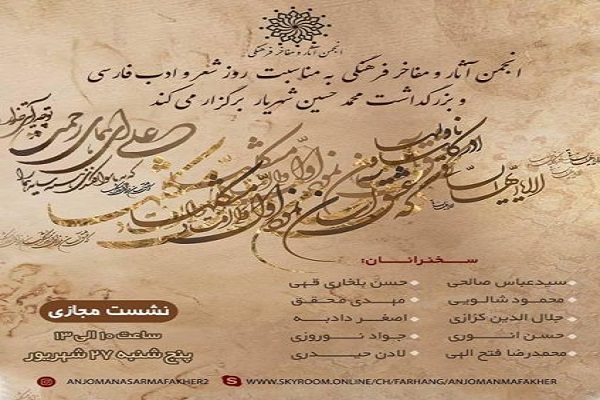 انجمن آثار و مفاخر فرهنگی
انجمن آثار و مفاخر فرهنگی به مناسبت روز شعر و ادب فارسی
و بزرگداشت محمد حسین شهریار برگزار می کند
علی ای همای رحمت
الا یا ایها الساقی ادر کاسا و ناولها
که عشق آسان نمود اول ولی افتاد مشکلها
سخنرانان:
سیدعباس صالحی
محمود شالویی
جلال الدین کزازی
حسن انوری
محمدرضا فتح الهی
حسن بلخاری قهی
مهدی محقق
اصغر دادبه
جواد نوروزی
لادن حیدری
نشست مجازی
ساعت ۱۰ الی ۱۳
پنج شنبه ۲۷ شهریور
ANJOMANASARMAFAKHER2
WWW.SKYROOM.ONLINE/CH/FARHANG/ANJOMANMAFAKHER